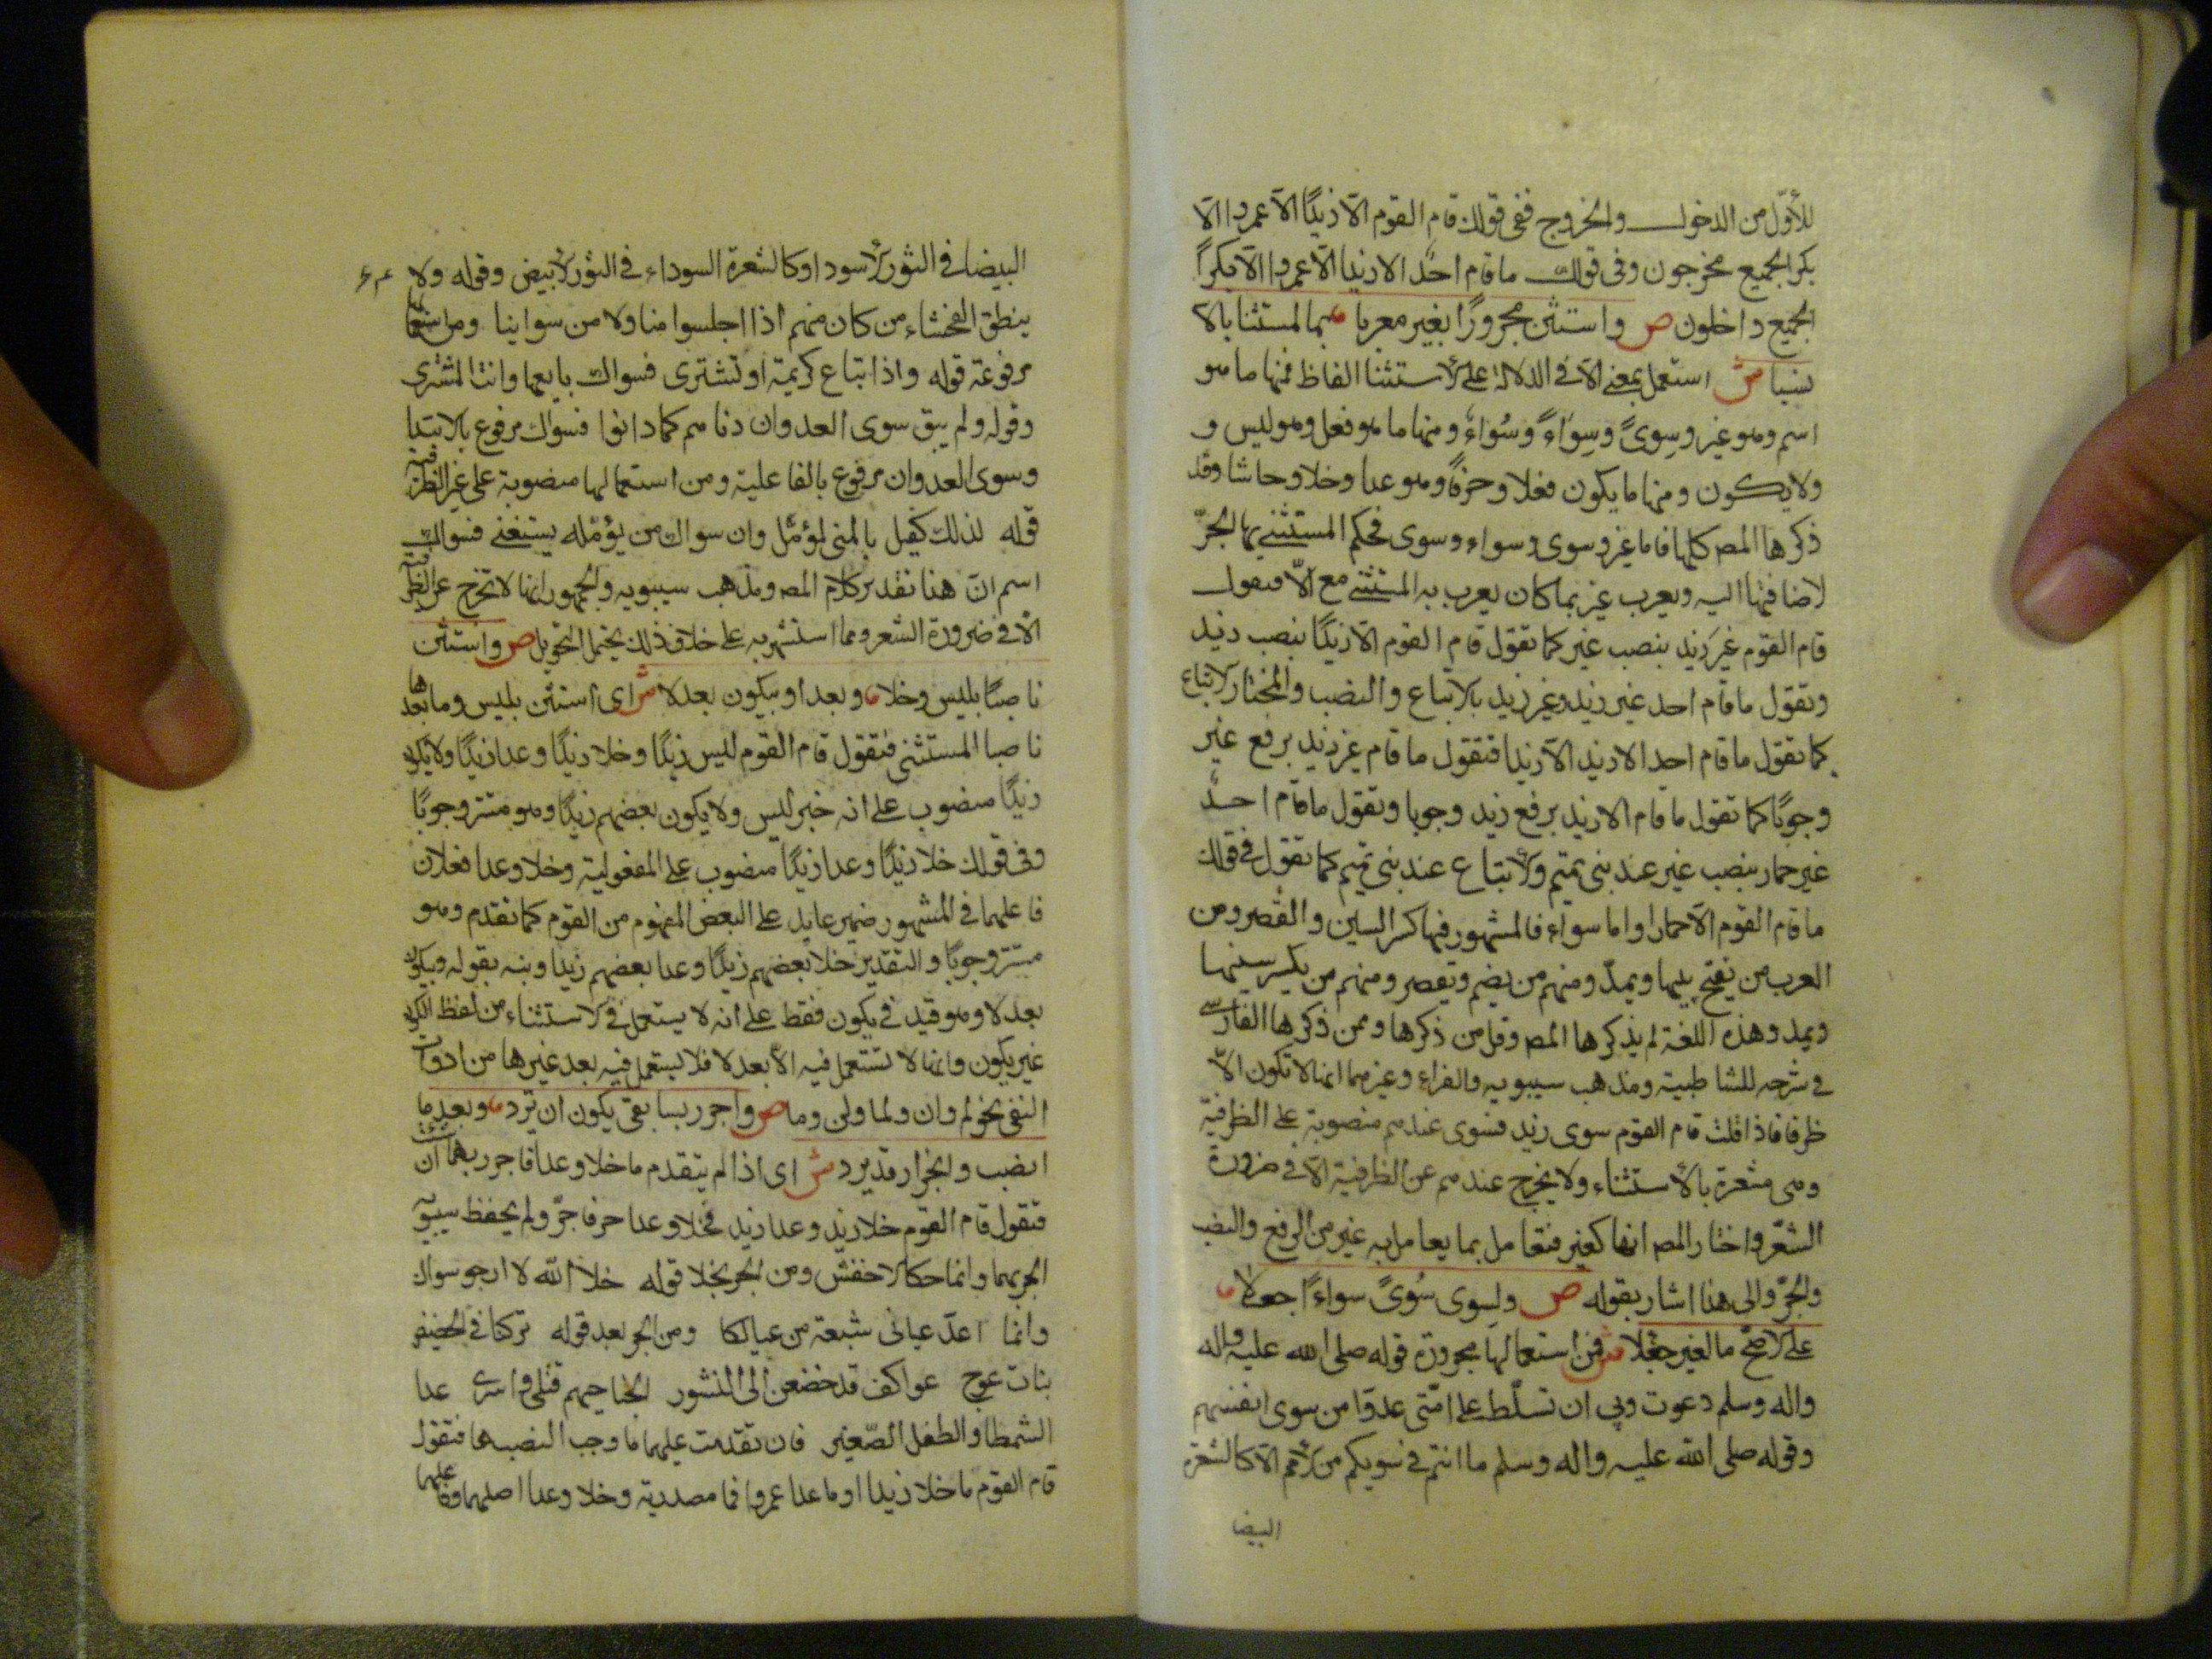 للأوّل من الدخول والخروج ففى قولك قام القوم الّا زيدًا الّا عمروا الّا
بكرا الجميع مخرجون وفى قولك ما قام احدٌ الا زيدا الّا عمروا الّا بكراً
الجميع داخلون ص واستثن مجرورًا بغير معربا م بما لمستثنا بالا
نسبا ش استعمل بمعنى الّا فى الدلالة على الاستثنا الفاظ فمنها ما هو
اسم وهو غير وسِوىً وسِواءً وسُواءً ومنها ما هو فعل وهو ليس و
ولا يكون ومنها ما يكون فعلا وحرفًا وهو عدا وخلا وحاشا وقد
ذكرها المصـ كلها فاما غير وسوى وسواء وسوى فحكم المستثنى بها الجرّ
لاضافتها اليه ويعرب غير بما كان يعرب به المستثنى مع الّا فتقول
قام القوم غيرَ زيد بنصب غير كما تقول قام القوم الّا زيدًا بنصب زيد
وتقول ما قام احد غير زيد وغير زيد بالاتباع والنصب والمختار الاتباع
كما تقول ما قام احد الا زيد الّا زيدا فتقول ما قام غير زيد برفع غير
وجوبًا كما تقول ما قام الا زيد برفع زيد وجوبا وتقول ما قام احدٌ
غير حمار بنصب غير عند بنى تميم والاتباع عند بنى تميم كما تقول فى قولك
ما قام القوم الّا حمارا واما سواء فالمشهور فيها كسر السين والقصر ومن
العرب من يفتح سينها ويمدّ ومنهم من يضم ويقصر ومنهم من يكسر سينها
ويمد وهذه اللغة لم يذكرها المصـ وقل من ذكرها وممن ذكرها الفارسى
فى شرحه للشاطبية ومذهب سيبويه والفراء وغيرهما انها لا تكون الّا
ظرفا فاذا قلت قام القوم سوى زيد فسوى عندهم منصوبة على الظرفية
وهى مشعرة بالأستثناء ولا يخرج عندهم عن الظرفية الّا فى ضرورة
الشعر واختار المصـ انها كغير فتعامل بما يعامل به غير من الرفع والنصب
والجرّ والى هذا اشار بقوله ص ولسوى سُوىً سواءً اجعلا م
على الاصحّ ما لغير جعلا ش فمن استعمالها مجرورة قوله صلى الله عليه واله
واله وسلم دعوت ربى ان تسلّط على امّتى عدوّا من سوى انفسهم
وقوله صلى الله عليه واله وسلم ما انتم فى سويكم من الأمم الّا كالشعرة
البيضا
البيضا فى الثور الأسود او كالشعرة السوداء فى الثور الأبيض وقوله ولا
ينطق الفحشاء من كان منهم اذا اجلسوا منا ولا من سواينا ومن استعمالها
مرفوعة قوله واذا تباع كريمة او تشترى فسواك بايعها وانت المشترى
وقوله ولم يبق سوى العدوان دناهم كما دانوا فسواك مرفوع بالابتدا
وسوى العدوان مرفوع بالفاعلية ومن استعمالها منصوبة على غير الظرفية
قوله لذلك كفيل بالمنى لمؤمّل وان سواك من يؤمّله يستغنى فسواك
اسم انّ هنا تقدير كلام المصـ ومذهب سيبويه والجمهور انها لا تخرج عن الظرفية
الّا فى ضرورة الشعر ومما استشهر به على خلاف ذلك يحتمل التحويل ص واستثن
ناصبًا بليس وخلا م وبعدا وبيكون بعد لا ش اى استثن بليس وما بعدها
ناصبا المستثنى فتقول قام القوم ليس زيدًا وخلا زيدًا وعدا زيدًا ولا يكون
زيدًا منصوب على انه خبر ليس ولا يكون بعضهم زيدًا وهو مستتر وجوبًا
وفى قولك خلا زيدًا وعدا زيدًا منصوب على المفعولية وخلا وعدا فعلان
فاعلهما فى المشهور ضمير عايد على البعض المفهوم من القوم كما تقدم وهو
مستتر وجوبًا والتقدير خلا بعضهم زيدًا وعدا بعضهم زيدا ونبه بقوله وبيكون
بعد لا وهو قيد فى يكون فقط على انه لا يستعمل فى الاستثناء من لفظ الكون
غير يكون وانها لا تستعمل فيه الّا بعد لا فلا يستعمل فيه بعد غيرها من ادوات
النفى نحو لم وان ولما ولن وما ص واجرر بسابقى يكون ان ترد م وبعد ما
انصب وانجرار قد يرد ش اى اذا لم يتقدم ما خلا وعدا فاجرر بهما ان شئت
فتقول قام القوم خلا زيد وعدا زيد فخلا وعدا حرفا جرّ ولم يحفظ سيبويه
الجر بهما وانما حكاه الاخفش ومن الجر بخلا قوله خلا الله لا ارجو سواك
وانما اعدّ عيالى شبعة من عيالكا ومن الجر بعد قوله تركنا فى الحضيض
بنات عوج عواكف قد خضعن الى النشور ابحنا حيهم قتلى واسرى عدا
الشمطا والطفل الصّغير فان تقدمت عليهما ما وجب النصب بهما فتقول
قام القوم ما خلا زيدا او ما عدا عمروا فما مصدرية وخلا وعدا اصلهما وفاعلهما